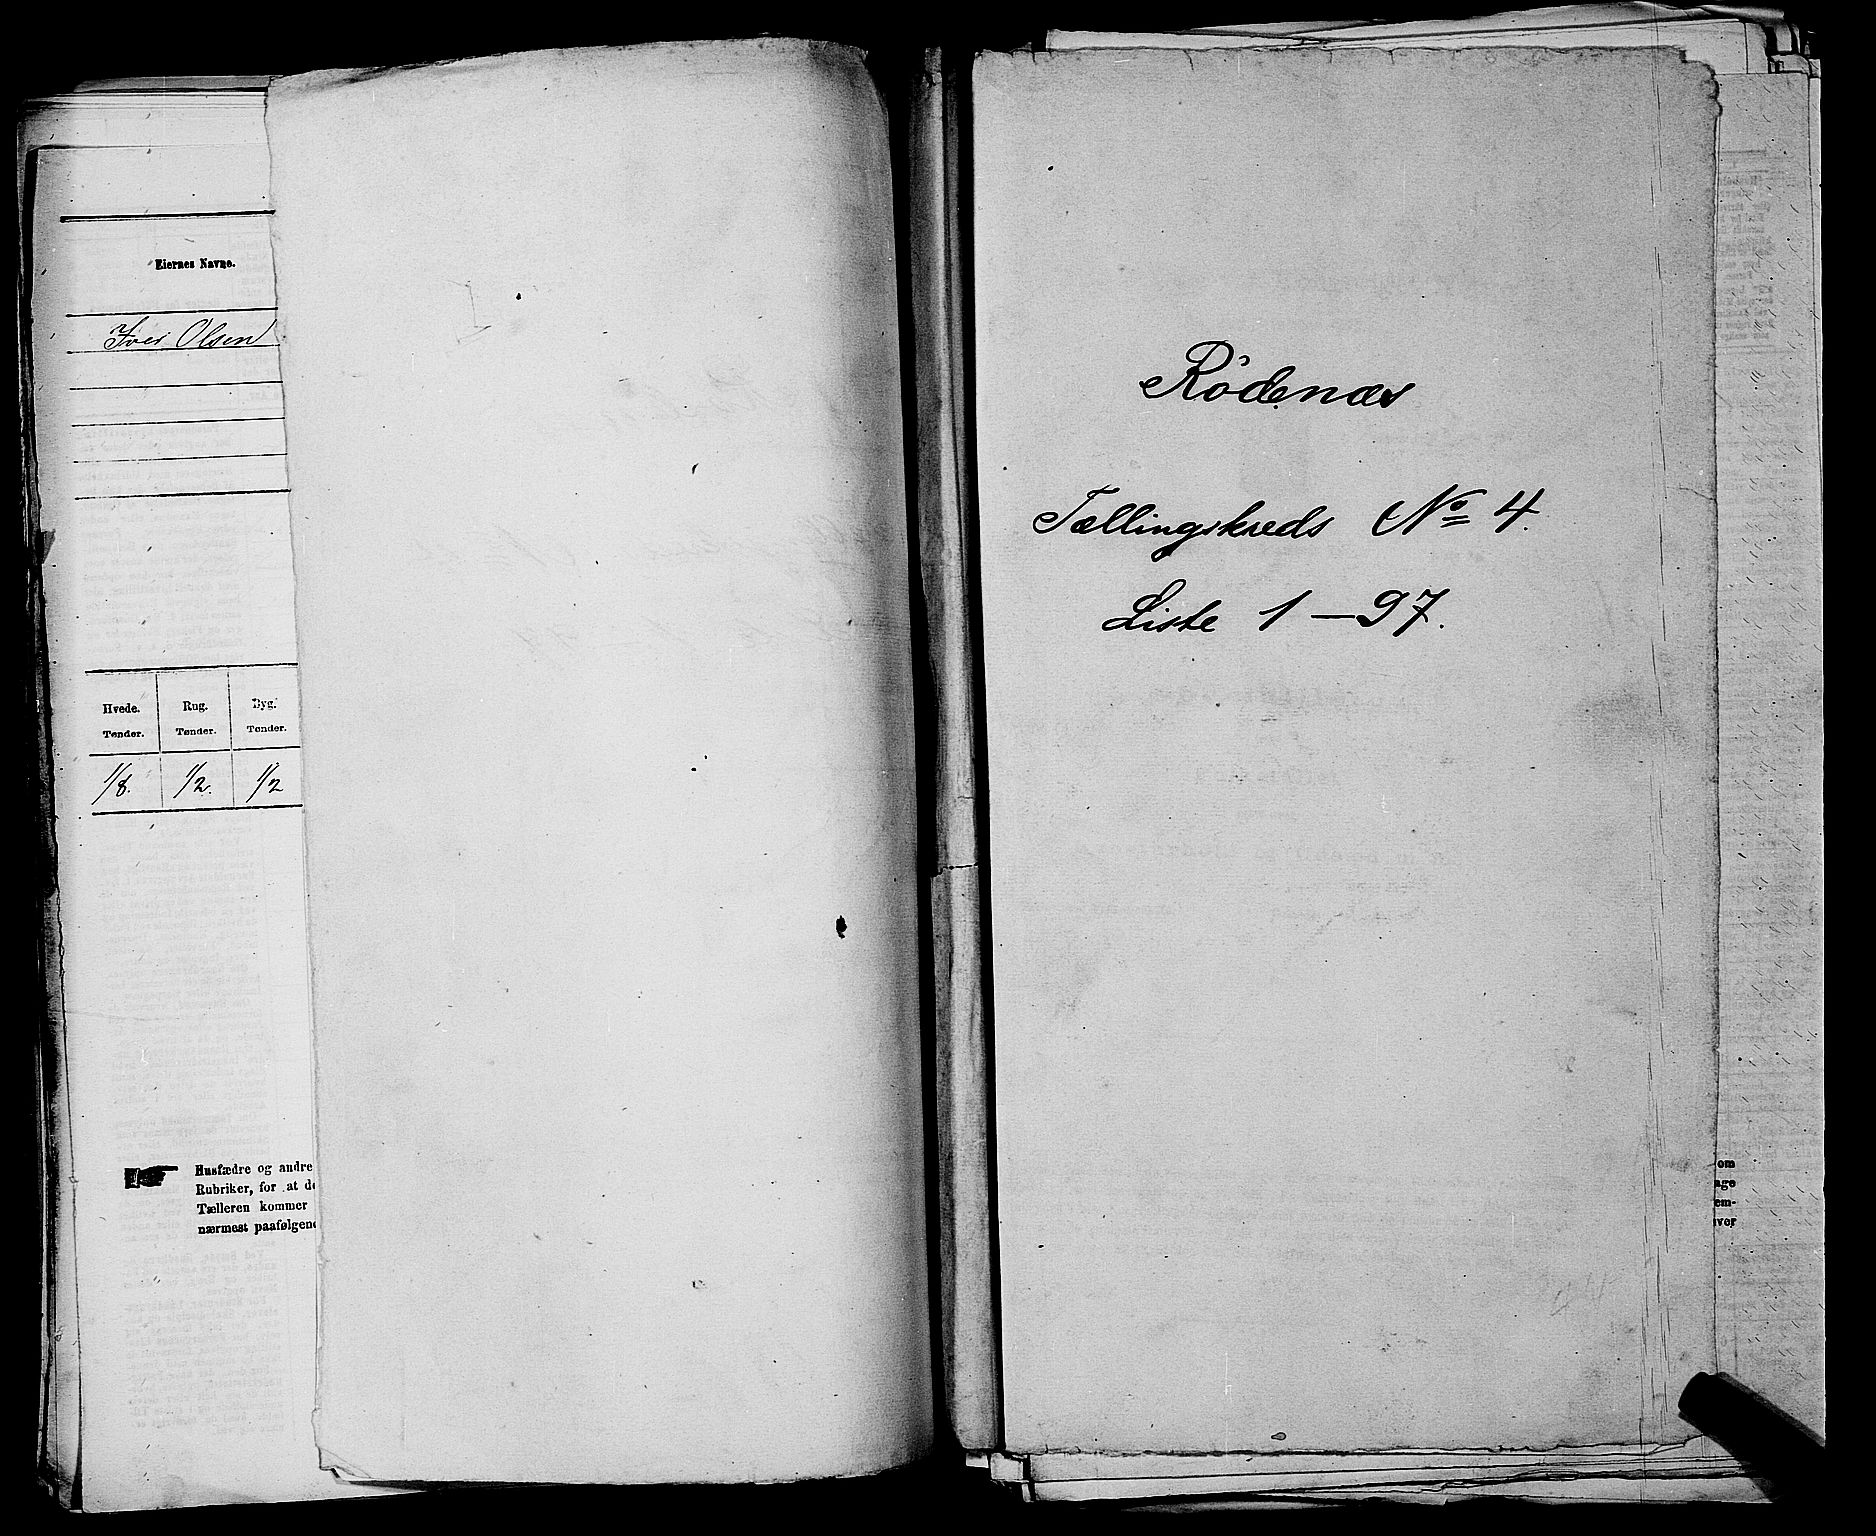 Eiernes Navne.
Iver Olsen
Hvede. Rug. Byg.
Tønder. Tønder. Tønder.
1/8. 1/2. 1/2
Husfædre og andre
Rubriker, for at de
Tælleren kommer
nærmest paafølgend
Rödenæs
Tællingskreds No 4.
Liste 1 — 97.
om
age
em-
iver